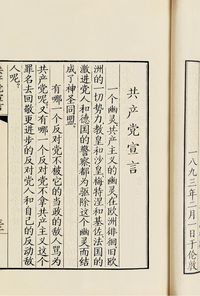 一八九三年二月一日于伦敦
共产党宣言
一个幽灵共产主义的幽灵在欧洲徘徊旧欧
洲的一切势力教皇和沙皇梅特涅和基佐法国的
激进党人和德国的警察都为驱除这个幽灵而结
成了神圣同盟
有哪一个反对党不被它的当政的敌人骂为
共产党呢又有哪一个反对党不拿共产主义这个
罪名去回敬更进步的反对党人和自己的反动敌
人呢?
共产党宣言